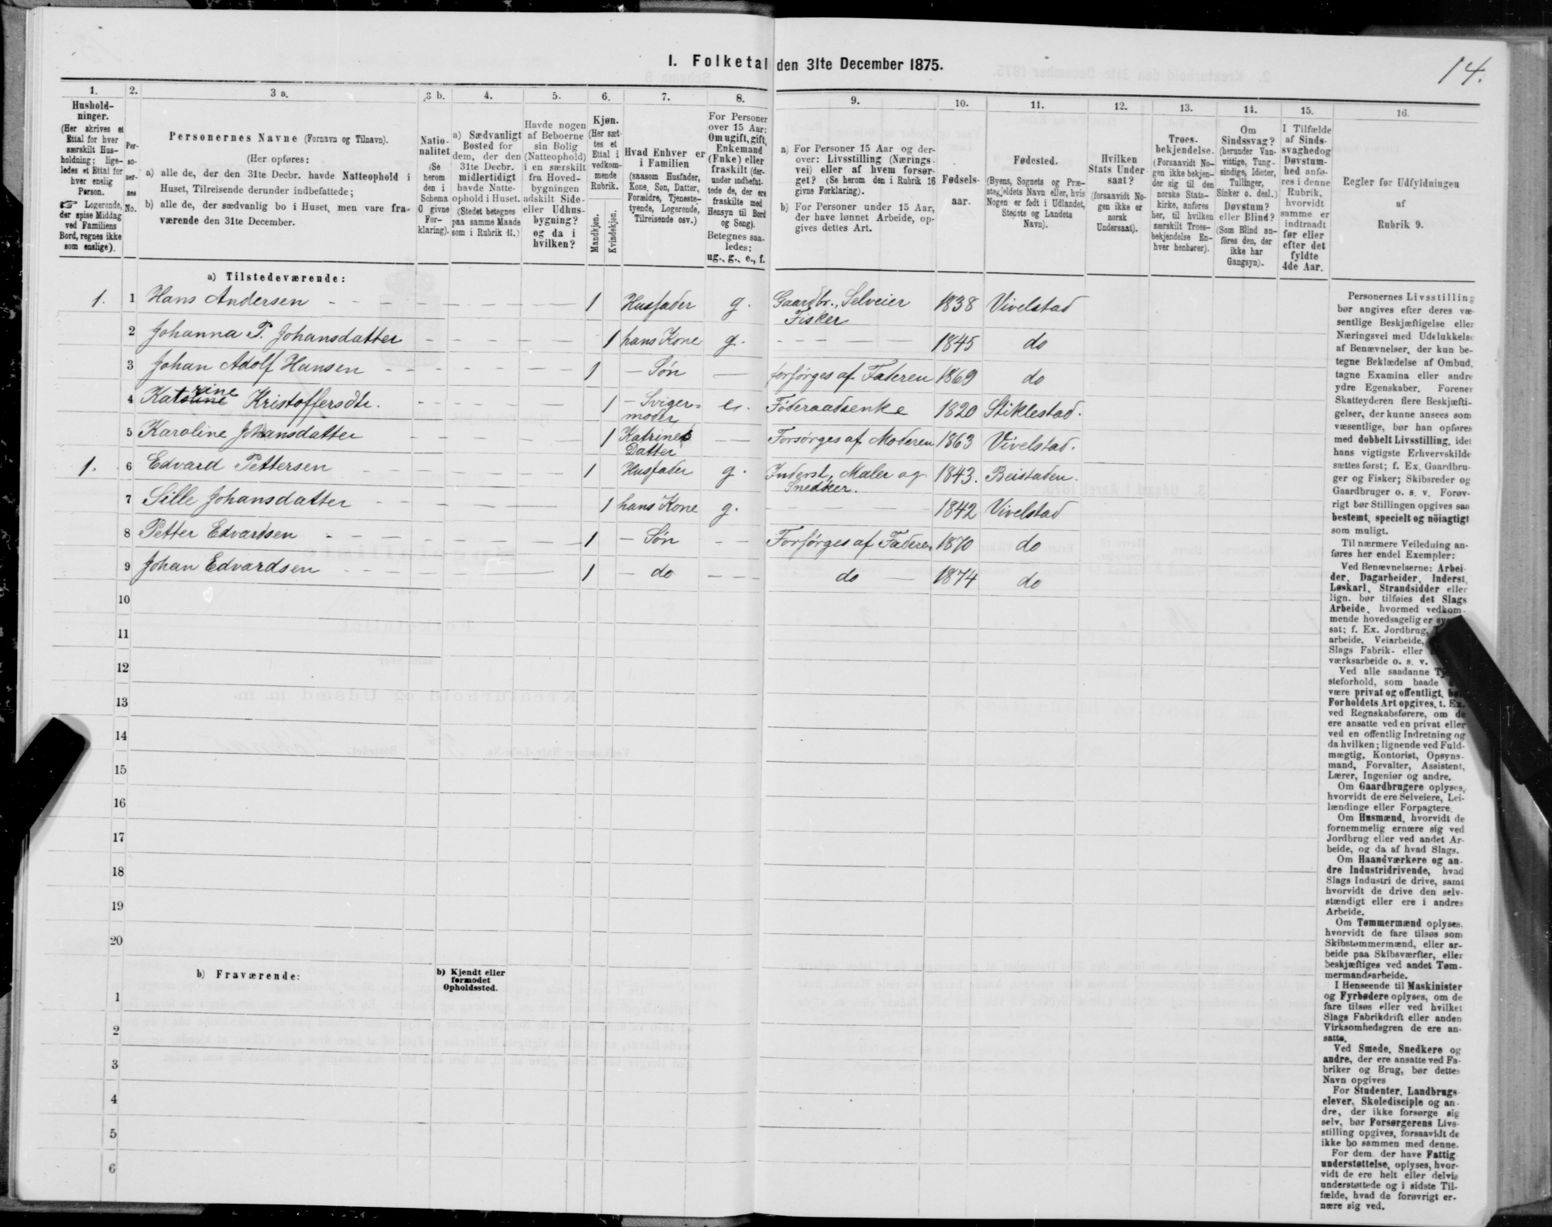 I. Folketal den 31te December 1875.
14.
1.
Hushold-
ninger.
(Her skrives et
Ettal for hver
særskilt Hus-
holdning; lige-
ledes et Ettal for
hver enslig
Person.
☞ Logerende,
der spise Middag
ved Familiens
Bord, regnes ikke
som enslige).
2.
Per-
so-
ner-
nes
No.
3 a.
Personernes Navne (Fornavn og Tilnavn).
(Her opføres:
a) alle de, der den 31te Decbr. havde Natteophold i
Huset, Tilreisende derunder indbefattede;
b) alle de, der sædvanlig bo i Huset, men vare fra-
værende den 31te December.
3 b.
Natio-
nalitet
(Se
herom
den i
Schema
0 givne
For-
klaring).
4.
a) Sædvanligt
Bosted for
dem, der den
31te Decbr.
midlertidigt
havde Natte-
ophold i Huset.
(Stedet betegnes
paa samme Maade
som i Rubrik 11.)
5.
Havde nogen
af Beboerne
sin Bolig
(Natteophold)
i en særskilt
fra Hoved-
bygningen
adskilt Side-
eller Udhus-
bygning?
og da i
hvilken?
6.
Kjøn.
(Her sæt-
tes et
Ettal i
vedkom-
mende
Rubrik.
Mandkjøn.
Kvindekjøn.
7.
Hvad Enhver er
i Familien
(saasom Husfader,
Kone, Søn, Datter,
Forældre, Tjeneste-
tyende, Logerende,
Tilreisende osv.)
8.
For Personer
over 15 Aar:
Om ugift, gift,
Enkemand
(Enke) eller
fraskilt (der-
under indbefat-
tede de, der ere
fraskilte med
Hensyn til Bord
og Seng).
Betegnes saa-
ledes:
ug., g., e., f.
9.
a) For Personer 15 Aar og der-
over: Livsstilling (Nærings-
vei) eller af hvem forsør-
get? (Se herom den i Rubrik 16
givne Forklaring).
b) For Personer under 15 Aar,
der have lønnet Arbeide, op-
gives dettes Art.
10.
Fødsels-
aar.
11.
Fødested.
(Byens, Sognets og Præ-
stegjeldets Navn eller, hvis
Nogen er født i Udlandet,
Stedets og Landets
Navn).
12.
Hvilken
Stats Under-
saat?
(forsaavidt No-
gen ikke er
norsk
Undersaat).
13.
Troes-
bekjendelse.
(Forsaavidt No-
gen ikke bekjen-
der sig til den
norske Stats-
kirke, anføres
her, til hvilken
særskilt Troes-
bekjendelse En-
hver henhører).
14.
Om
Sindssvag?
(herunder Van-
vittige, Tung-
sindige, Idioter,
Tullinger,
Sinker o. desl.)
Døvstum?
eller Blind?
(Som Blind an-
føres den, der
ikke har
Gangsyn).
15.
I Tilfælde
af Sinds-
svaghed og
Døvstum-
hed anfø-
res i denne
Rubrik,
hvorvidt
samme er
indtraadt
før eller
efter det
fyldte
4de Aar.
16.
Regler for Udfyldningen
af
Rubrik 9.
a) Tilstedeværende:
1. 1 Hans Andersen 1 Husfader g. Gaardbr., Selveier Fisker 1838 Vivelstad
2 Johanna P. Johansdatter 1 hans Kone g. 1845 do
3 Johan Adolf Hansen 1 Søn forsørges af Faderen 1869 do
4 Katrine Kristoffersdtr. 1 Sviger-moder e. Føderaadsenke 1820 Stiklestad.
5 Karoline Johansdatter 1 Katrines Datter Forsørges af Moderen 1863 Vivelstad.
1. 6 Edvard Pettersen 1 Husfader g. Inderst, Maler og Snedker. 1843. Beistaden.
7 Sille Johansdatter 1 hans Kone g. 1842 Vivelstad
8 Petter Edvardsen 1 Søn Forsørges af Faderen 1870 do
9 Johan Edvardsen 1 do do 1874 do
10
11
12
13
14
15
16
17
18
19
20
b) Fraværende:
b) Kjendt eller
formodet
Opholdssted.
1
2
3
4
5
6
Personernes Livsstilling
bør angives efter deres væ-
sentlige Beskjæftigelse eller
Næringsvei med Udelukkelse
af Benævnelser, der kun be-
tegne Beklædelse af Ombud,
tagne Examina eller andre
ydre Egenskaber. Forener
Skatteyderen flere Beskjæfti-
gelser, der kunne ansees som
væsentlige, bør han opføres
med dobbelt Livsstilling, idet
hans vigtigste Erhvervskilde
sættes først; f. Ex. Gaardbru-
ger og Fisker; Skibsreder og
Gaardbruger o. s. v. Forøv-
rigt bør Stillingen opgives saa
bestemt, specielt og nøiagtigt
som muligt.
Til nærmere Veiledning an-
føres her endel Exempler:
Ved Benævnelserne: Arbei-
der, Dagarbeider, Inderst,
Løskarl, Strandsidder eller
lign. bør tilføies det Slags
Arbeide, hvormed vedkom-
mende hovedsagelig er
sat; f. Ex. Jordbrug,
arbeide, Veiarbeide,
Slags Fabrik- eller
værksarbeide o. s. v.
Ved alle saadanne
steforhold, som baade
være privat og offentligt,
Forholdets Art opgives, t. Ex.
ved Regnskabsførere, om de
ere ansatte ved en privat eller
ved en offentlig Indretning og
da hvilken; lignende ved Fuld-
mægtig, Kontorist, Opsyns-
mand, Forvalter, Assistent,
Lærer, Ingeniør og andre.
Om Gaardbrugere oplyses,
hvorvidt de ere Selveiere, Lei-
lændinge eller Forpagtere.
Om Husmænd, hvorvidt de
fornemmelig ernære sig ved
Jordbrug eller ved andet Ar-
beide, og da af hvad Slags.
Om Haandværkere og an-
dre Industridrivende, hvad
Slags Industri de drive, samt
hvorvidt de drive den selv-
stændigt eller ere i andres
Arbeide.
Om Tømmermænd oplyses,
hvorvidt de fare tilsøs som
Skibstømmermænd, eller ar-
beide paa Skibsværfter, eller
beskjæftiges ved andet Tøm-
mermandsarbeide.
I Henseende til Maskinister
og Fyrbødere oplyses, om de
fare tilsøs eller ved hvilket
Slags Fabrikdrift eller anden
Virksomhedsgren de ere an-
satte.
Ved Smede, Snedkere og
andre, der ere ansatte ved Fa-
briker og Brug, bør dettes
Navn opgives
For Studenter, Landbrugs-
elever, Skoledisciple og an-
dre, der ikke forsørge sig
selv, bør Forsørgerens Livs-
stilling opgives, forsaavidt de
ikke bo sammen med denne.
For dem, der have Fattig-
understøttelse, oplyses, hvor-
vidt de ere helt eller delvis
understøttede og i sidste Til-
fælde, hvad de forøvrigt er-
nære sig ved.